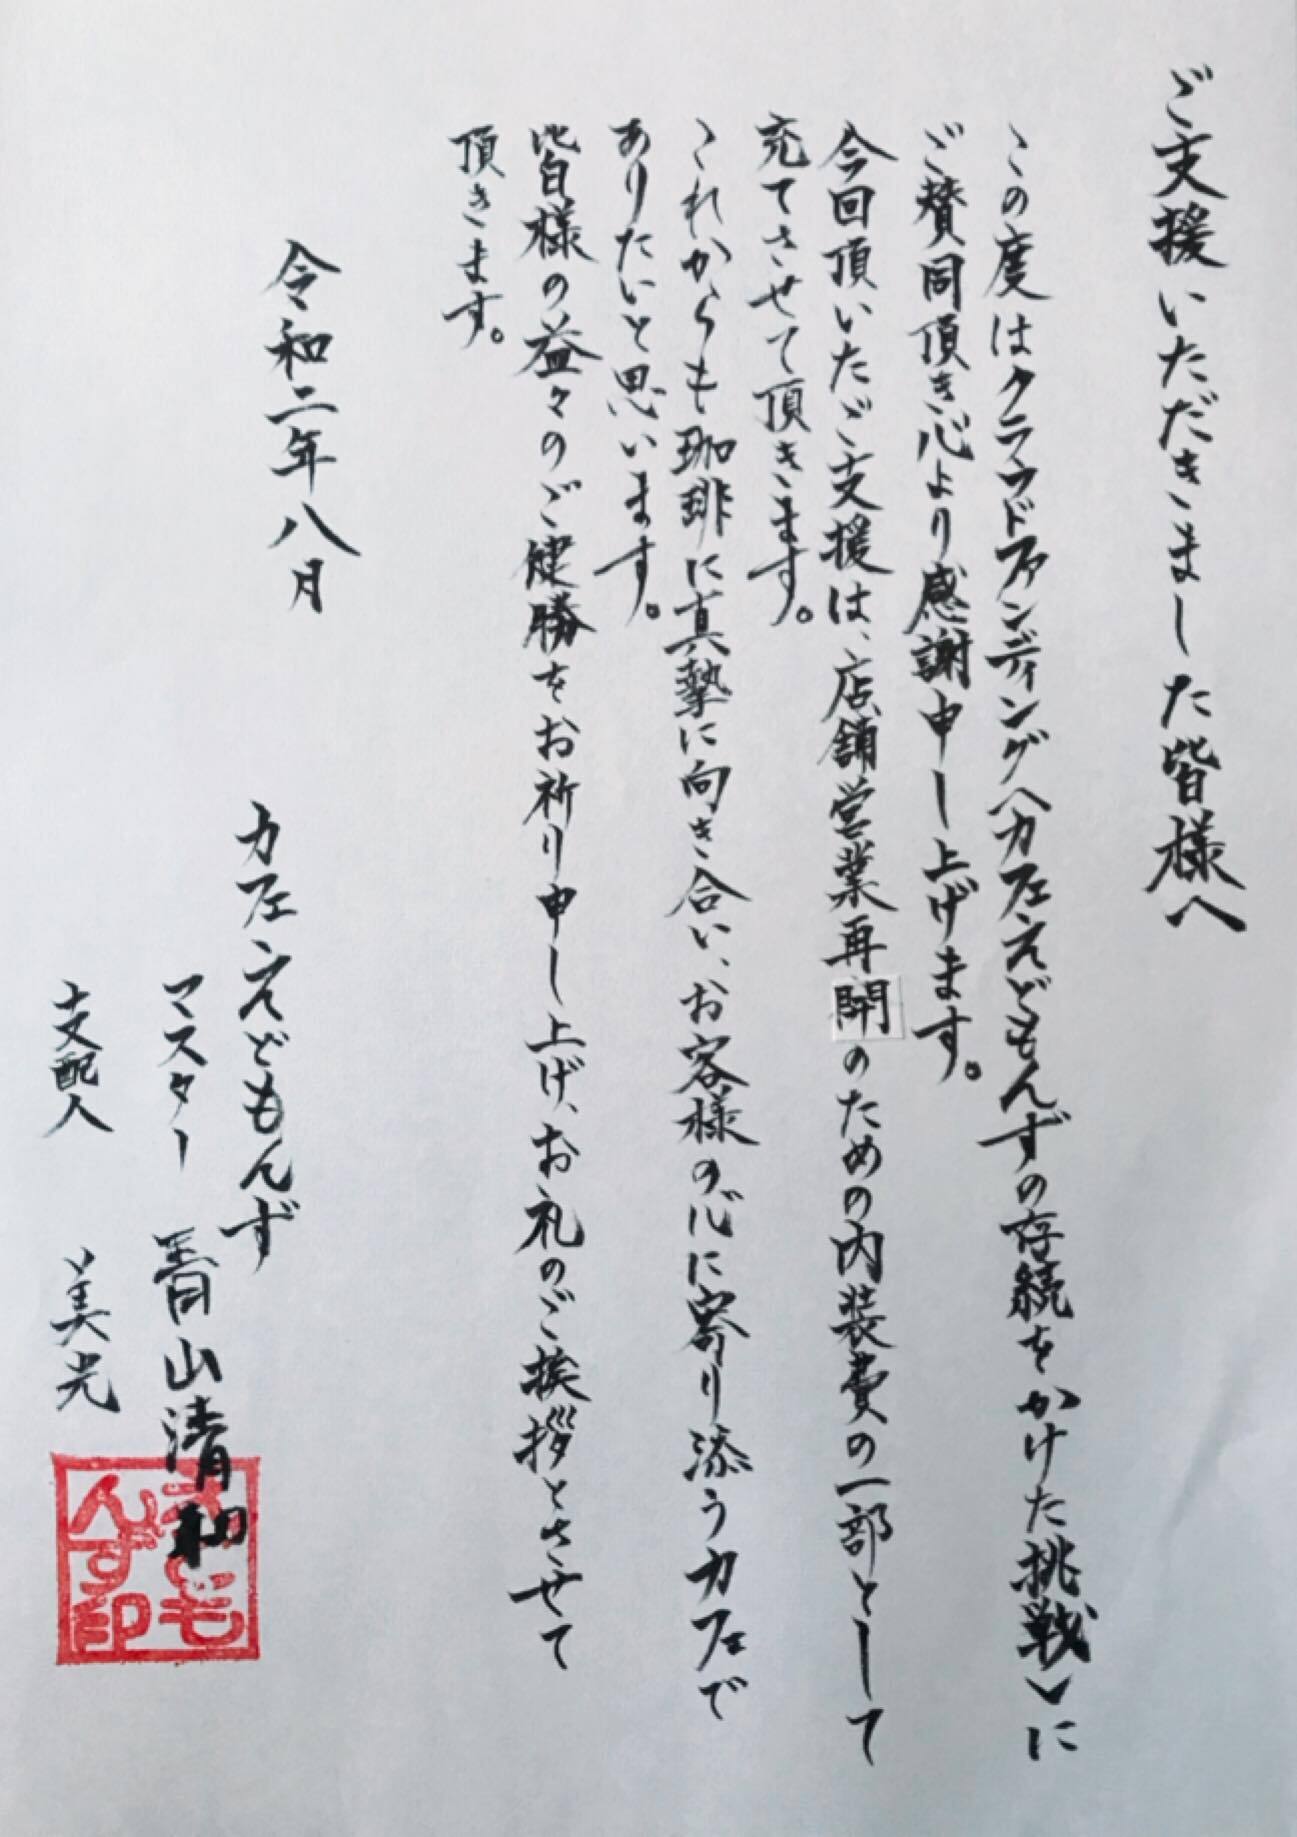 ご支援いただきました皆様へ
この度はクラウドファンディング〈カフェえどもんずの存続をかけた挑戦〉に
ご賛同頂き心より感謝申し上げます。
今回頂いたご支援は、店舗営業再開のための内装費の一部として
充てさせて頂きます。
これからも珈琲に真摯に向き合い、お客様の心に寄り添うカフェで
ありたいと思います。
皆様の益々のご健勝をお祈り申し上げ、お礼のご挨拶とさせて
頂きます。
令和二年八月
カフェえどもんず
マスター 青山清和
支配人 美光
えども
んず印